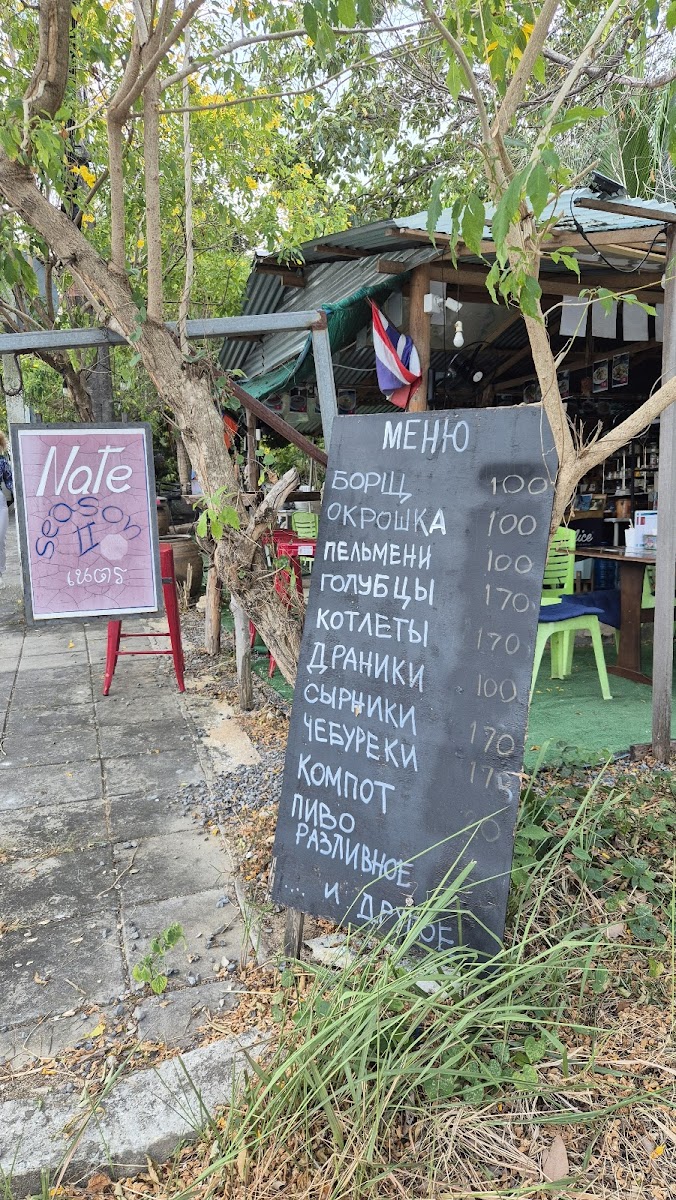 Nate
Season
II
เนตร
МЕНЮ
БОРЩ 100
ОКРОШКА 100
ПЕЛЬМЕНИ 100
ГОЛУБЦЫ 170
КОТЛЕТЫ 170
ДРАНИКИ 100
СЫРНИКИ 170
ЧЕБУРЕКИ 170
КОМПОТ
ПИВО
РАЗЛИВНОЕ
... И ДРУГОЕ